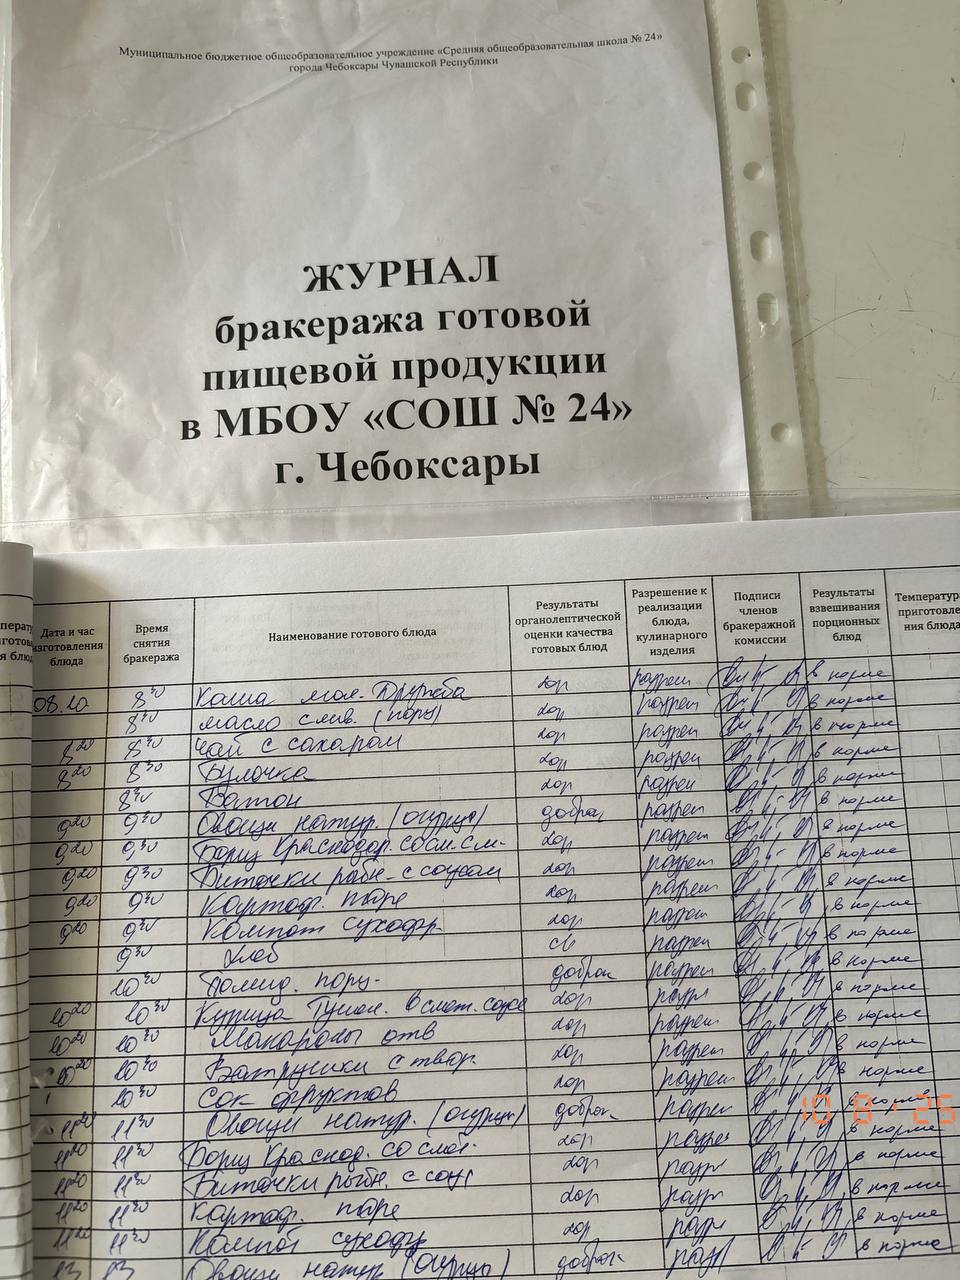 Муниципальное бюджетное общеобразовательное учреждение «Средняя общеобразовательная школа № 24»
города Чебоксары Чувашской Республики
ЖУРНАЛ
бракеража готовой
пищевой продукции
в МБОУ «СОШ № 24»
г. Чебоксары
Дата и час изготовления блюда Время снятия бракеража Наименование готового блюда Результаты органолептической оценки качества готовых блюд Разрешение к реализации блюда, кулинарного изделия Подписи членов бракеражной комиссии Результаты взвешивания порционных блюд
08.10 8 30 Каша мол. Дружба хор разреш в норме
8 30 масло слив. (порц) хор разреш в норме
8 20 8 30 Чай с сахаром хор разреш в норме
8 20 8 30 Булочка хор разреш в норме
8 30 Батон хор разреш в норме
9 20 9 30 Овощи натур. (огурцы) доброк. разреш в норме
9 20 9 30 Борщ Краснодар. со см. хор разреш в норме
9 20 9 30 Биточки рыбн. с соусом хор разреш в норме
9 20 9 30 Картоф. пюре хор разреш в норме
9 20 9 30 Компот сухофр. хор разреш в норме
9 30 Хлеб разреш в норме
10 30 Помид. порц. доброк разреш в норме
10 20 10 30 Курица Тушен. в смет. соусе хор разр в норме
10 20 10 30 Макароны отв хор разреш в норме
10 20 10 30 Ватрушки с твор. хор разреш в норме
10 30 Сок фруктов хор разреш в норме
11 20 11 30 Овощи натур. (огурцы) доброк. разреш в норме
11 20 11 30 Борщ Краснод. со смет. хор разреш в норме
11 20 11 30 Биточки рыбн. с соус хор разр в норме
11 20 11 30 Картоф. пюре хор разр в норме
11 20 11 30 Компот сухофр хор разр в норме
13 13 Овощи натур (огурцы) доброк разр в норме
10 8 '25